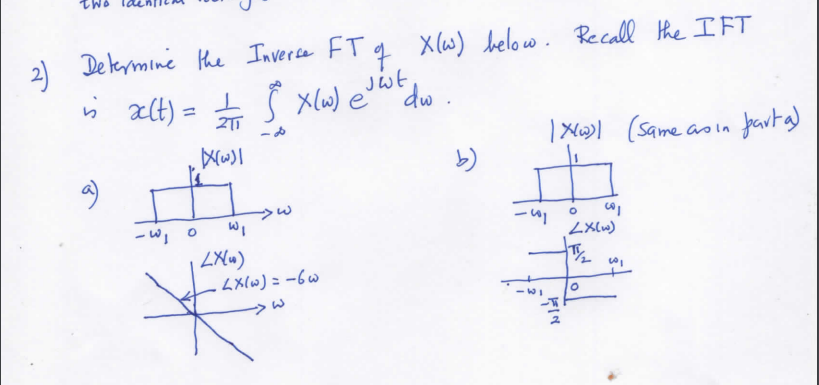 two identical
2) Determine the Inverse FT of X(ω) below. Recall the IFT
is x(t) = 1/2π ∫_{-∞}^{∞} X(ω) e^{jωt} dω.
a)
|X(ω)|
1
-ω₁ 0 ω₁ ω
∠X(ω)
∠X(ω) = -6ω
ω
b)
|X(ω)| (Same as in part a)
1
-ω₁ 0 ω₁
∠X(ω)
π/2 ω₁
-ω₁ 0
-π/2